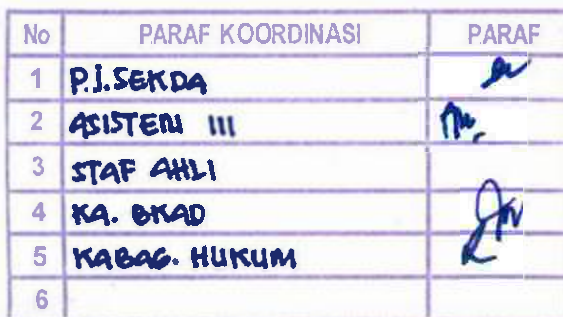 No PARAF KOORDINASI PARAF
1 P.J.SEKDA
2 ASISTEN III
3 STAF AHLI
4 KA. BKAD
5 KABAG. HUKUM
6